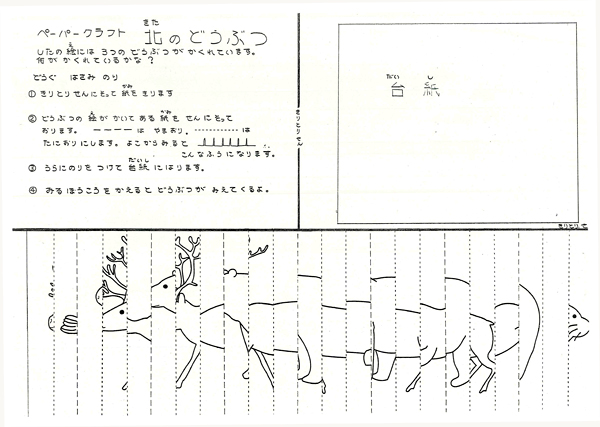 ペーパークラフト 北のどうぶつ
きた
したの絵には 3つの どうぶつが かくれています。
え
何が かくれているかな？
どうぐ はさみ のり
① きりとりせんにそって 紙を きります
かみ
② どうぶつの 絵が かいて ある 紙を せんにそって
え かみ
おります。 ーーーー は やまおり、………… は
たにおりにします。よこからみると
こんなふうに なります。
③ うらにのりを つけて 台紙 にはります。
だいし
④ みる ほうこうを かえると どうぶつが みえてくるよ。
きりとりせん
だい し
台 紙
きりとりせ